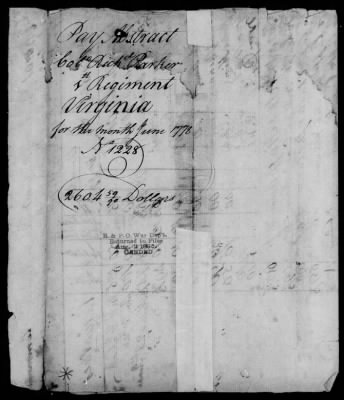 Pay Abstract
Colo Richd Parker
1st Regiment
Virginia
for the month June 1778
No 1228
2604 52/90 Dollars
R. & P. O. War Dep't.
Returned to Files
CARDED